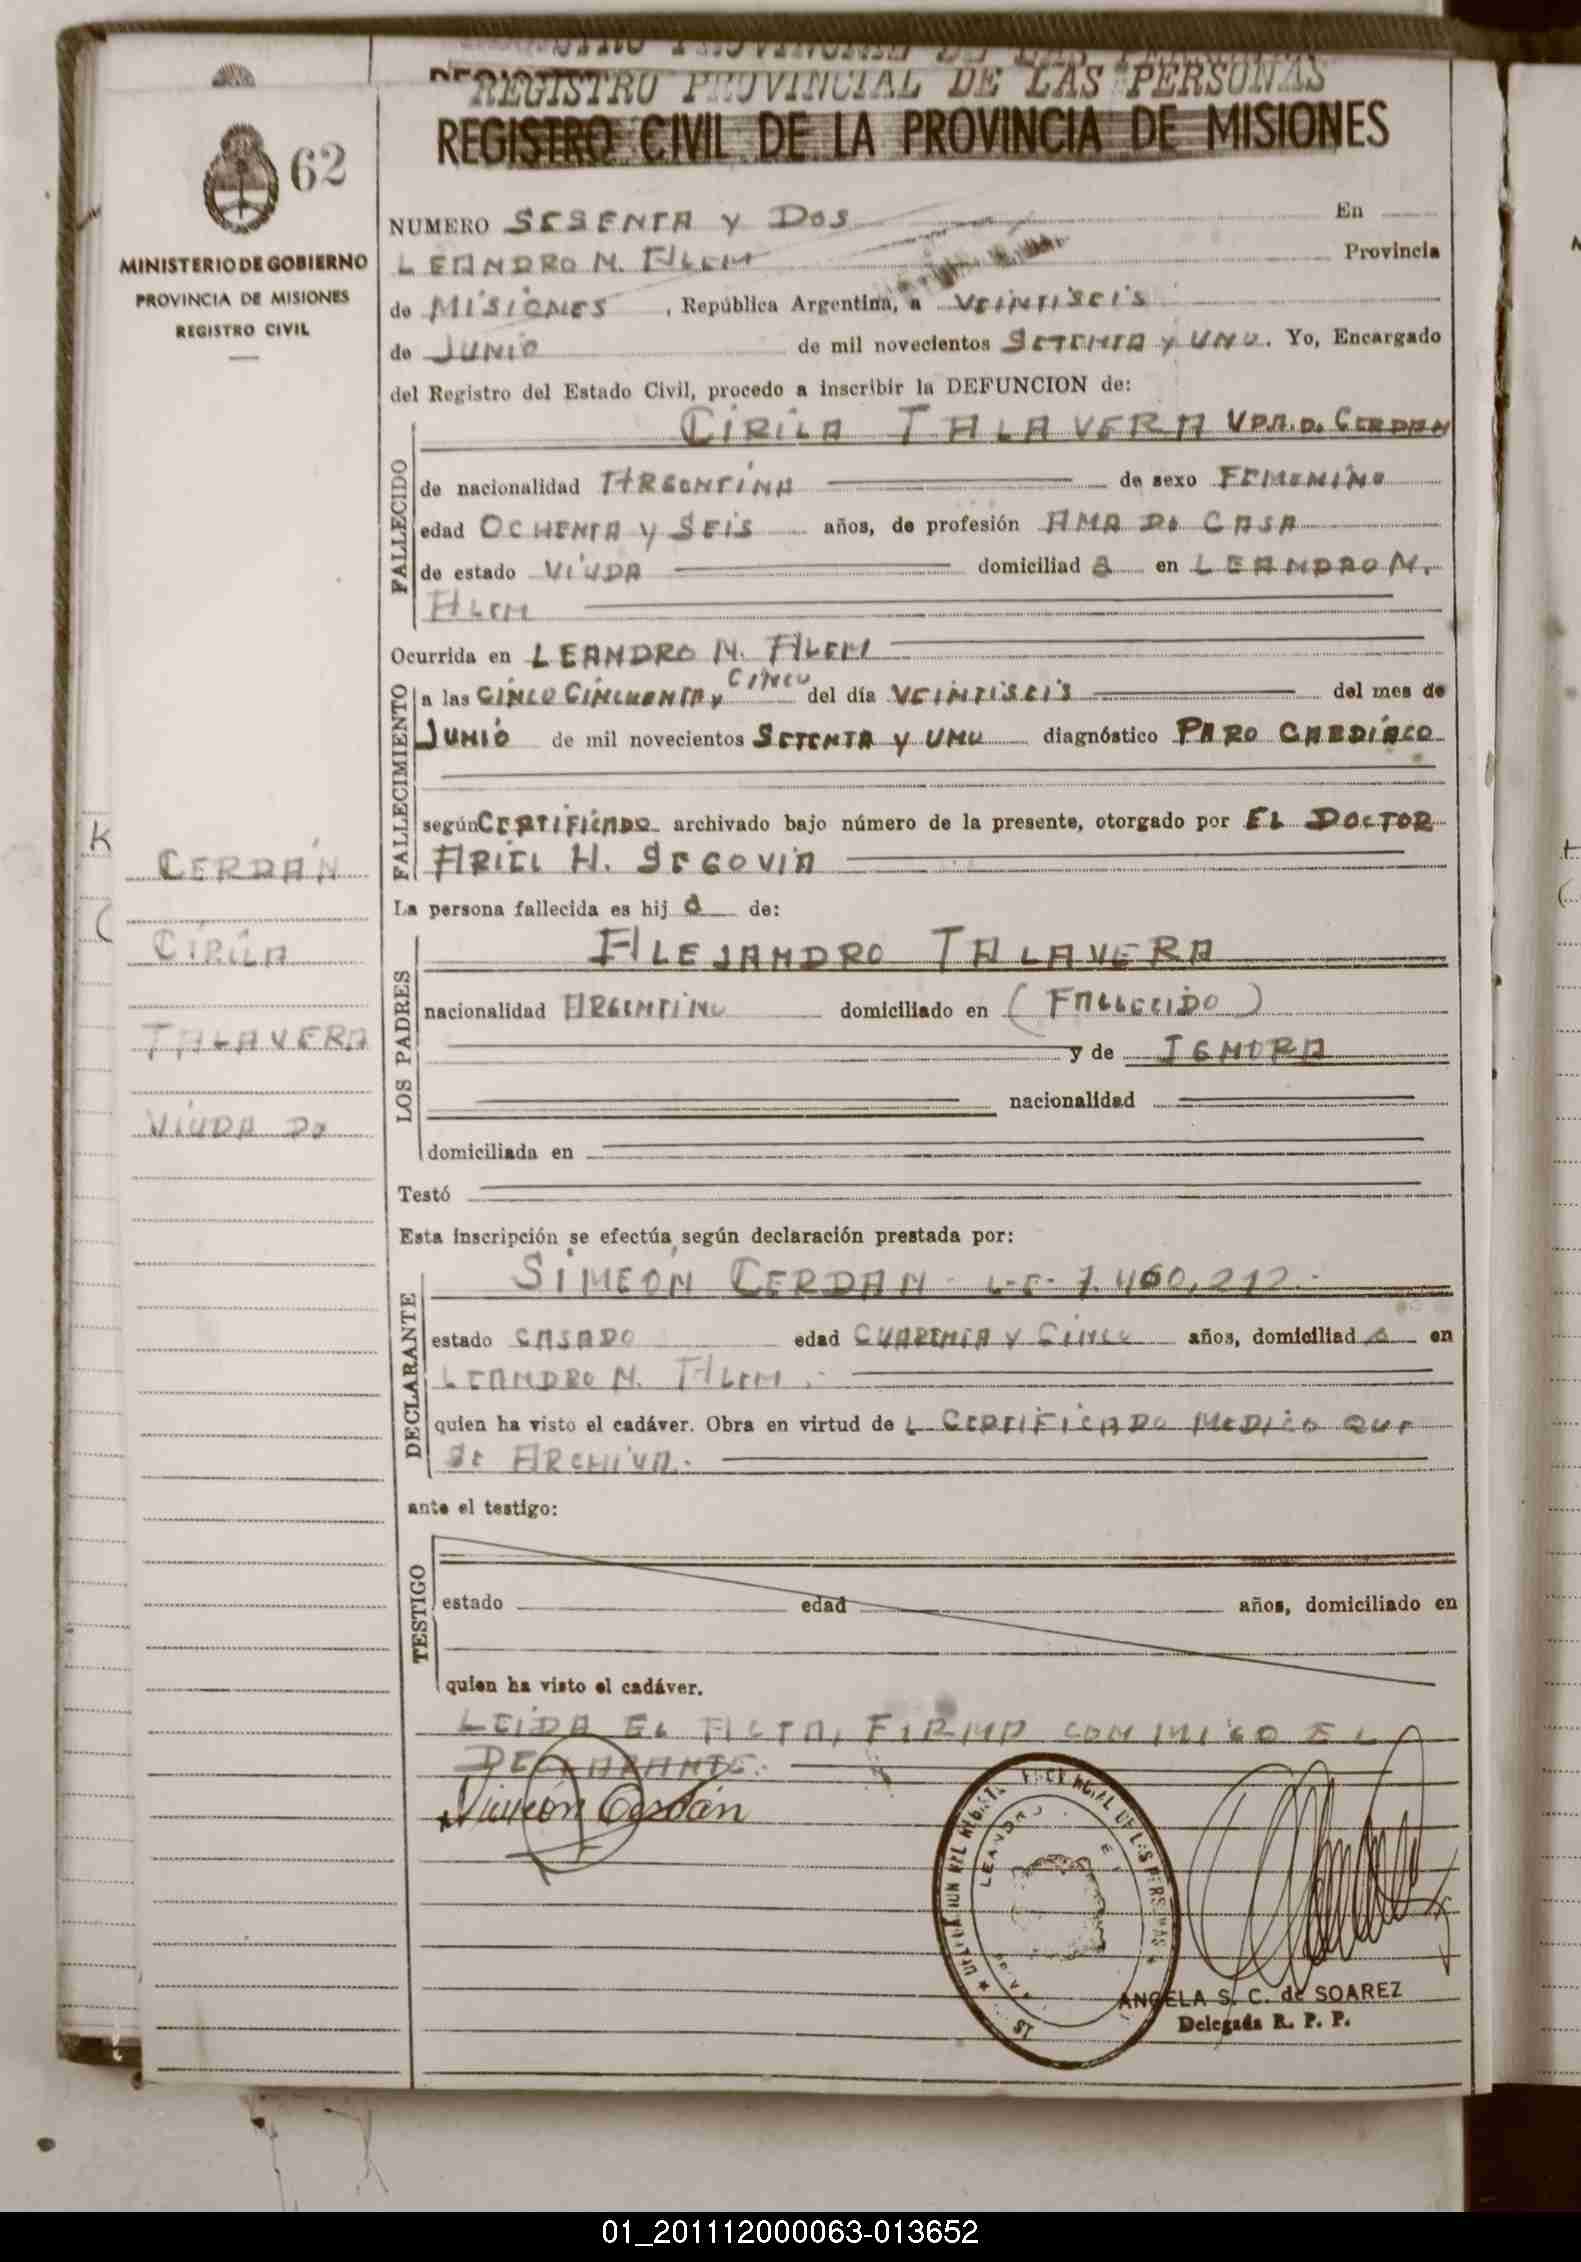 REGISTRO PROVINCIAL DE LAS PERSONAS
REGISTRO CIVIL DE LA PROVINCIA DE MISIONES
62
MINISTERIO DE GOBIERNO
PROVINCIA DE MISIONES
REGISTRO CIVIL
NUMERO SESENTA Y DOS En
LEANDRO N. ALEM Provincia
de MISIONES, República Argentina, a VEINTISEIS
de JUNIO de mil novecientos SETENTA Y UNO. Yo, Encargado
del Registro del Estado Civil, procedo a inscribir la DEFUNCION de:
CIRILA TALAVERA VDA. DE CERDAN
FALLECIDO
de nacionalidad ARGENTINA de sexo FEMENINO
edad OCHENTA Y SEIS años, de profesión AMA DE CASA
de estado VIUDA domiciliad A en LEANDRO N.
ALEM
Ocurrida en LEANDRO N. ALEM
FALLECIMIENTO
a las CINCO CINCUENTA Y CINCO del día VEINTISEIS del mes de
JUNIO de mil novecientos SETENTA Y UNO diagnóstico PARO CARDÍACO
según CERTIFICADO archivado bajo número de la presente, otorgado por EL DOCTOR
ARIEL H. SEGOVIA
La persona fallecida es hij a de:
LOS PADRES
ALEJANDRO TALAVERA
nacionalidad ARGENTINO domiciliado en (FALLECIDO)
y de IGNORA
nacionalidad
domiciliada en
Testó
Esta inscripción se efectúa según declaración prestada por:
DECLARANTE
SIMEÓN CERDAN - L.E. 7.460.212.-
estado CASADO edad CUARENTA Y CINCO años, domiciliad o en
LEANDRO N. ALEM.-
quien ha visto el cadáver. Obra en virtud de L CERTIFICADO MEDICO QUE
SE ARCHIVA.-
ante el testigo:
TESTIGO
estado edad años, domiciliado en
quien ha visto el cadáver.
LEIDA EL ACTA, FIRMA CONMIGO EL
DECLARANTE.-
Simeón Cerdán
LEANDRO
ANGELA S. C. de SOAREZ
Delegada R. P. P.
CERDÁN
CIRILA
TALAVERA
VIUDA DE
K
01_201112000063-013652